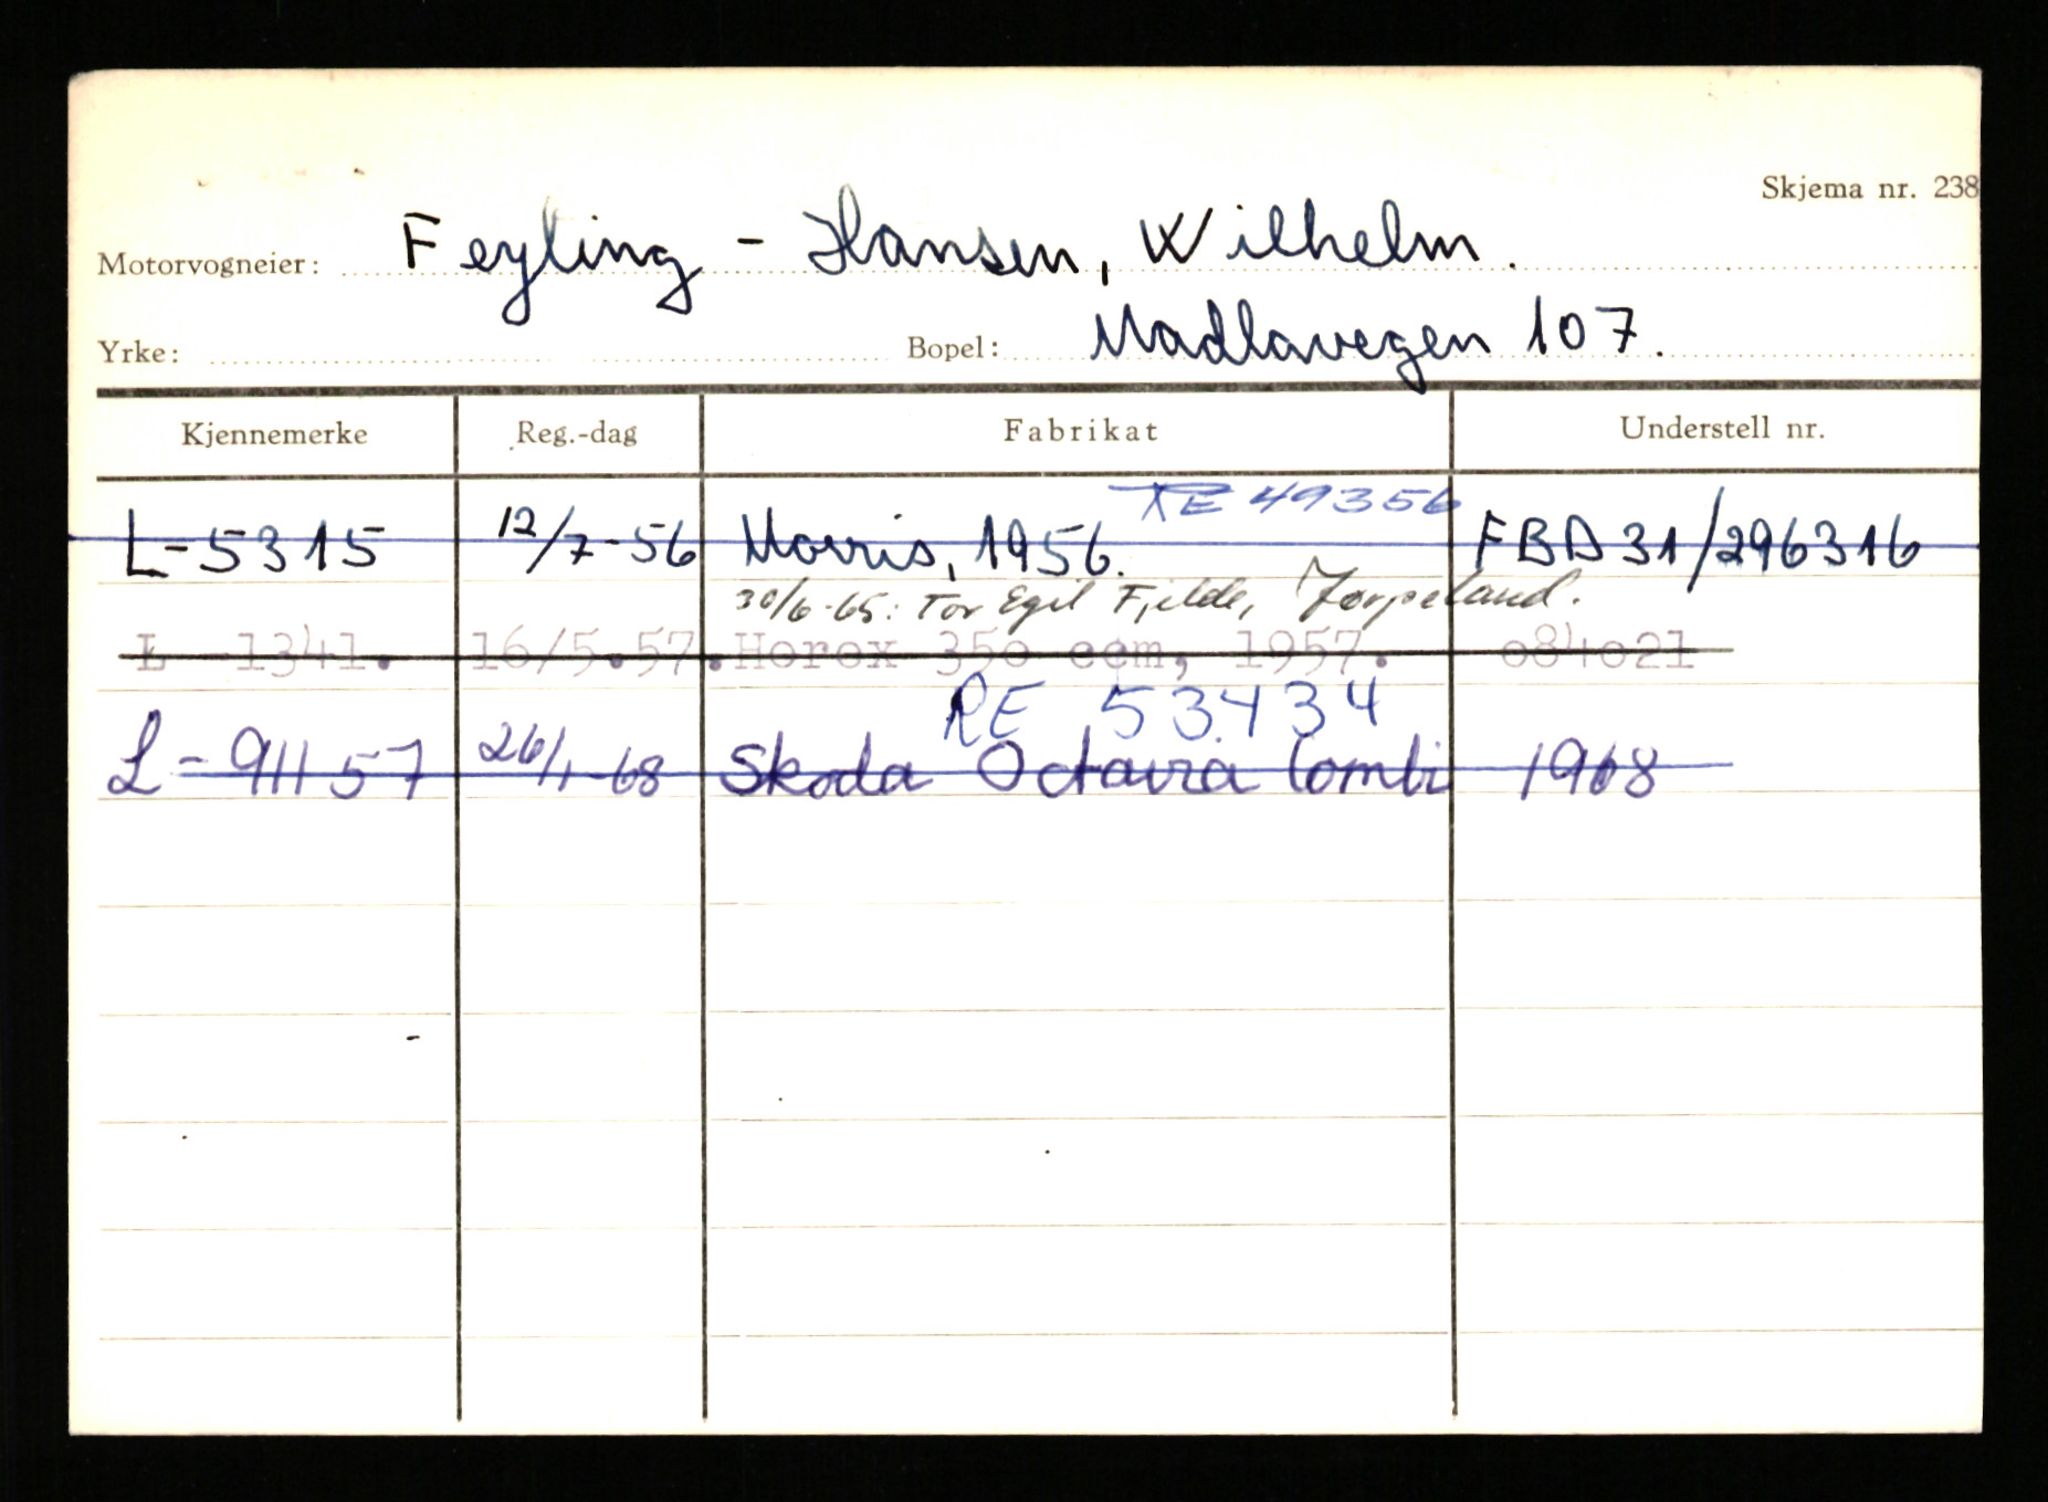 Skjema nr. 238
Motorvogneier: Feyling - Hansen, Wilhelm.
Yrke: Bopel: Madlavegen 107.
Kjennemerke Reg.-dag Fabrikat Understell nr.
RE 49356
L-5315 12/7-56 Morris, 1956. FBD31/296316
30/6-65: Tor Egil Fjelde, Jørpeland.
L 1341. 16/5.57. Horex 350 ccm, 1957. 084021
RE 53434
L-91157 26/1-68 Skoda Octavia Combi 1968